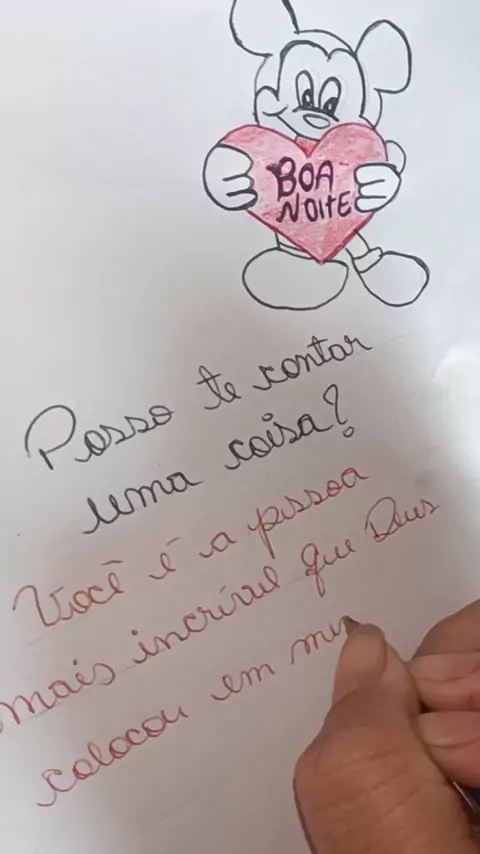 BOA
NOITE
Posso te contar
uma coisa?
Você é a pessoa
mais incrível que Deus
colocou em meu